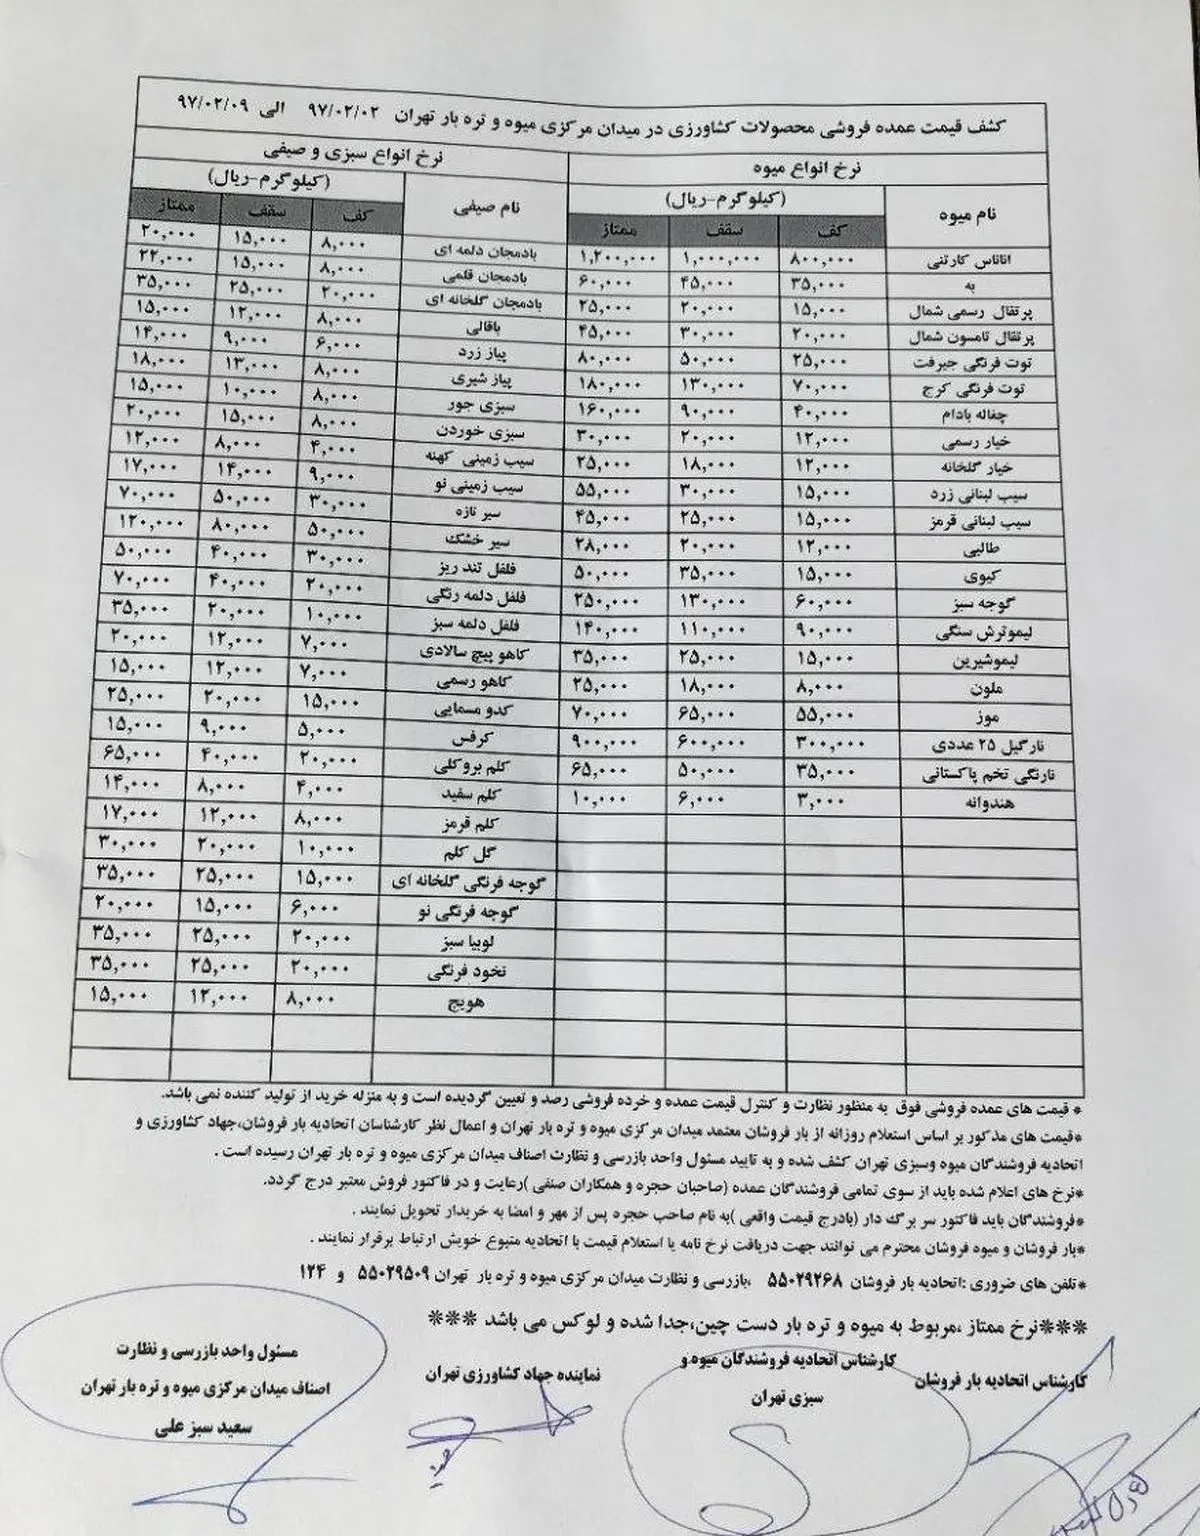 کشف قیمت عمده فروشی محصولات کشاورزی در میدان مرکزی میوه و تره بار تهران ۹۷/۰۲/۰۲ الی ۹۷/۰۲/۰۹
نرخ انواع میوه
نام میوه (کیلوگرم-ریال)
کف سقف ممتاز
اناناس کارتنی ۸۰۰,۰۰۰ ۱,۰۰۰,۰۰۰ ۱,۲۰۰,۰۰۰
به ۳۵,۰۰۰ ۴۵,۰۰۰ ۶۰,۰۰۰
پرتقال رسمی شمال ۱۵,۰۰۰ ۲۰,۰۰۰ ۲۵,۰۰۰
پرتقال تامسون شمال ۲۰,۰۰۰ ۳۰,۰۰۰ ۴۵,۰۰۰
توت فرنگی جیرفت ۲۵,۰۰۰ ۵۰,۰۰۰ ۸۰,۰۰۰
توت فرنگی کرج ۷۰,۰۰۰ ۱۳۰,۰۰۰ ۱۸۰,۰۰۰
چغاله بادام ۴۰,۰۰۰ ۹۰,۰۰۰ ۱۶۰,۰۰۰
خیار رسمی ۱۲,۰۰۰ ۲۰,۰۰۰ ۳۰,۰۰۰
خیار گلخانه ۱۲,۰۰۰ ۱۸,۰۰۰ ۲۵,۰۰۰
سیب لبنانی زرد ۱۵,۰۰۰ ۳۰,۰۰۰ ۵۵,۰۰۰
سیب لبنانی قرمز ۱۵,۰۰۰ ۲۵,۰۰۰ ۴۵,۰۰۰
طالبی ۱۲,۰۰۰ ۲۰,۰۰۰ ۲۸,۰۰۰
کیوی ۱۵,۰۰۰ ۳۵,۰۰۰ ۵۰,۰۰۰
گوجه سبز ۶۰,۰۰۰ ۱۳۰,۰۰۰ ۲۵۰,۰۰۰
لیموترش سنگی ۹۰,۰۰۰ ۱۱۰,۰۰۰ ۱۴۰,۰۰۰
لیموشیرین ۱۵,۰۰۰ ۲۵,۰۰۰ ۳۵,۰۰۰
ملون ۸,۰۰۰ ۱۸,۰۰۰ ۲۵,۰۰۰
موز ۵۵,۰۰۰ ۶۵,۰۰۰ ۷۰,۰۰۰
نارگیل ۲۵ عددی ۳۰۰,۰۰۰ ۶۰۰,۰۰۰ ۹۰۰,۰۰۰
نارنگی تخم پاکستانی ۳۵,۰۰۰ ۵۰,۰۰۰ ۶۵,۰۰۰
هندوانه ۳,۰۰۰ ۶,۰۰۰ ۱۰,۰۰۰
نرخ انواع سبزی و صیفی
نام صیفی (کیلوگرم-ریال)
کف سقف ممتاز
بادمجان دلمه ای ۸,۰۰۰ ۱۵,۰۰۰ ۲۰,۰۰۰
بادمجان قلمی ۸,۰۰۰ ۱۵,۰۰۰ ۲۲,۰۰۰
بادمجان گلخانه ای ۲۰,۰۰۰ ۲۵,۰۰۰ ۳۵,۰۰۰
باقالی ۸,۰۰۰ ۱۲,۰۰۰ ۱۵,۰۰۰
پیاز زرد ۶,۰۰۰ ۹,۰۰۰ ۱۴,۰۰۰
پیاز شیری ۸,۰۰۰ ۱۳,۰۰۰ ۱۸,۰۰۰
سبزی جور ۸,۰۰۰ ۱۰,۰۰۰ ۱۵,۰۰۰
سبزی خوردن ۸,۰۰۰ ۱۵,۰۰۰ ۲۰,۰۰۰
سیب زمینی کهنه ۴,۰۰۰ ۸,۰۰۰ ۱۲,۰۰۰
سیب زمینی نو ۹,۰۰۰ ۱۴,۰۰۰ ۱۷,۰۰۰
سیر تازه ۳۰,۰۰۰ ۵۰,۰۰۰ ۷۰,۰۰۰
سیر خشک ۵۰,۰۰۰ ۸۰,۰۰۰ ۱۲۰,۰۰۰
فلفل تند ریز ۳۰,۰۰۰ ۴۰,۰۰۰ ۵۰,۰۰۰
فلفل دلمه رنگی ۲۰,۰۰۰ ۴۰,۰۰۰ ۷۰,۰۰۰
فلفل دلمه سبز ۱۰,۰۰۰ ۲۰,۰۰۰ ۳۵,۰۰۰
کاهو پیچ سالادی ۷,۰۰۰ ۱۲,۰۰۰ ۲۰,۰۰۰
کاهو رسمی ۷,۰۰۰ ۱۲,۰۰۰ ۱۵,۰۰۰
کدو مسمایی ۱۵,۰۰۰ ۲۰,۰۰۰ ۲۵,۰۰۰
کرفس ۵,۰۰۰ ۹,۰۰۰ ۱۵,۰۰۰
کلم بروکلی ۲۰,۰۰۰ ۴۰,۰۰۰ ۶۵,۰۰۰
کلم سفید ۴,۰۰۰ ۸,۰۰۰ ۱۴,۰۰۰
کلم قرمز ۸,۰۰۰ ۱۲,۰۰۰ ۱۷,۰۰۰
گل کلم ۱۰,۰۰۰ ۲۰,۰۰۰ ۳۰,۰۰۰
گوجه فرنگی گلخانه ای ۱۵,۰۰۰ ۲۵,۰۰۰ ۳۵,۰۰۰
گوجه فرنگی نو ۶,۰۰۰ ۱۵,۰۰۰ ۲۰,۰۰۰
لوبیا سبز ۲۰,۰۰۰ ۲۵,۰۰۰ ۳۵,۰۰۰
نخود فرنگی ۲۰,۰۰۰ ۲۵,۰۰۰ ۳۵,۰۰۰
هویج ۸,۰۰۰ ۱۲,۰۰۰ ۱۵,۰۰۰
* قیمت های عمده فروشی فوق به منظور نظارت و کنترل قیمت عمده و خرده فروشی رصد و تعیین گردیده است و به منزله خرید از تولید کننده نمی باشد.
*قیمت های مذکور بر اساس استعلام روزانه از بار فروشان معتمد میدان مرکزی میوه و تره بار تهران و اعمال نظر کارشناسان اتحادیه بار فروشان،جهاد کشاورزی و
اتحادیه فروشندگان میوه وسبزی تهران کشف شده و به تایید مسئول واحد بازرسی و نظارت اصناف میدان مرکزی میوه و تره بار تهران رسیده است .
*نرخ های اعلام شده باید از سوی تمامی فروشندگان عمده (صاحبان حجره و همکاران صنفی )رعایت و در فاکتور فروش معتبر درج گردد.
*فروشندگان باید فاکتور سر برگ دار (بادرج قیمت واقعی )به نام صاحب حجره پس از مهر و امضا به خریدار تحویل نمایند .
*بار فروشان و میوه فروشان محترم می توانند جهت دریافت نرخ نامه یا استعلام قیمت با اتحادیه متبوع خویش ارتباط برقرار نمایند .
*تلفن های ضروری :اتحادیه بار فروشان ۵۵۰۲۹۲۶۸ ،بازرسی و نظارت میدان مرکزی میوه و تره بار تهران ۵۵۰۲۹۵۰۹ و ۱۲۴
***نرخ ممتاز ،مربوط به میوه و تره بار دست چین،جدا شده و لوکس می باشد ***
کارشناس اتحادیه بار فروشان
کارشناس اتحادیه فروشندگان میوه و
سبزی تهران
نماینده جهاد کشاورزی تهران
مسئول واحد بازرسی و نظارت
اصناف میدان مرکزی میوه و تره بار تهران
سعید سبز علی